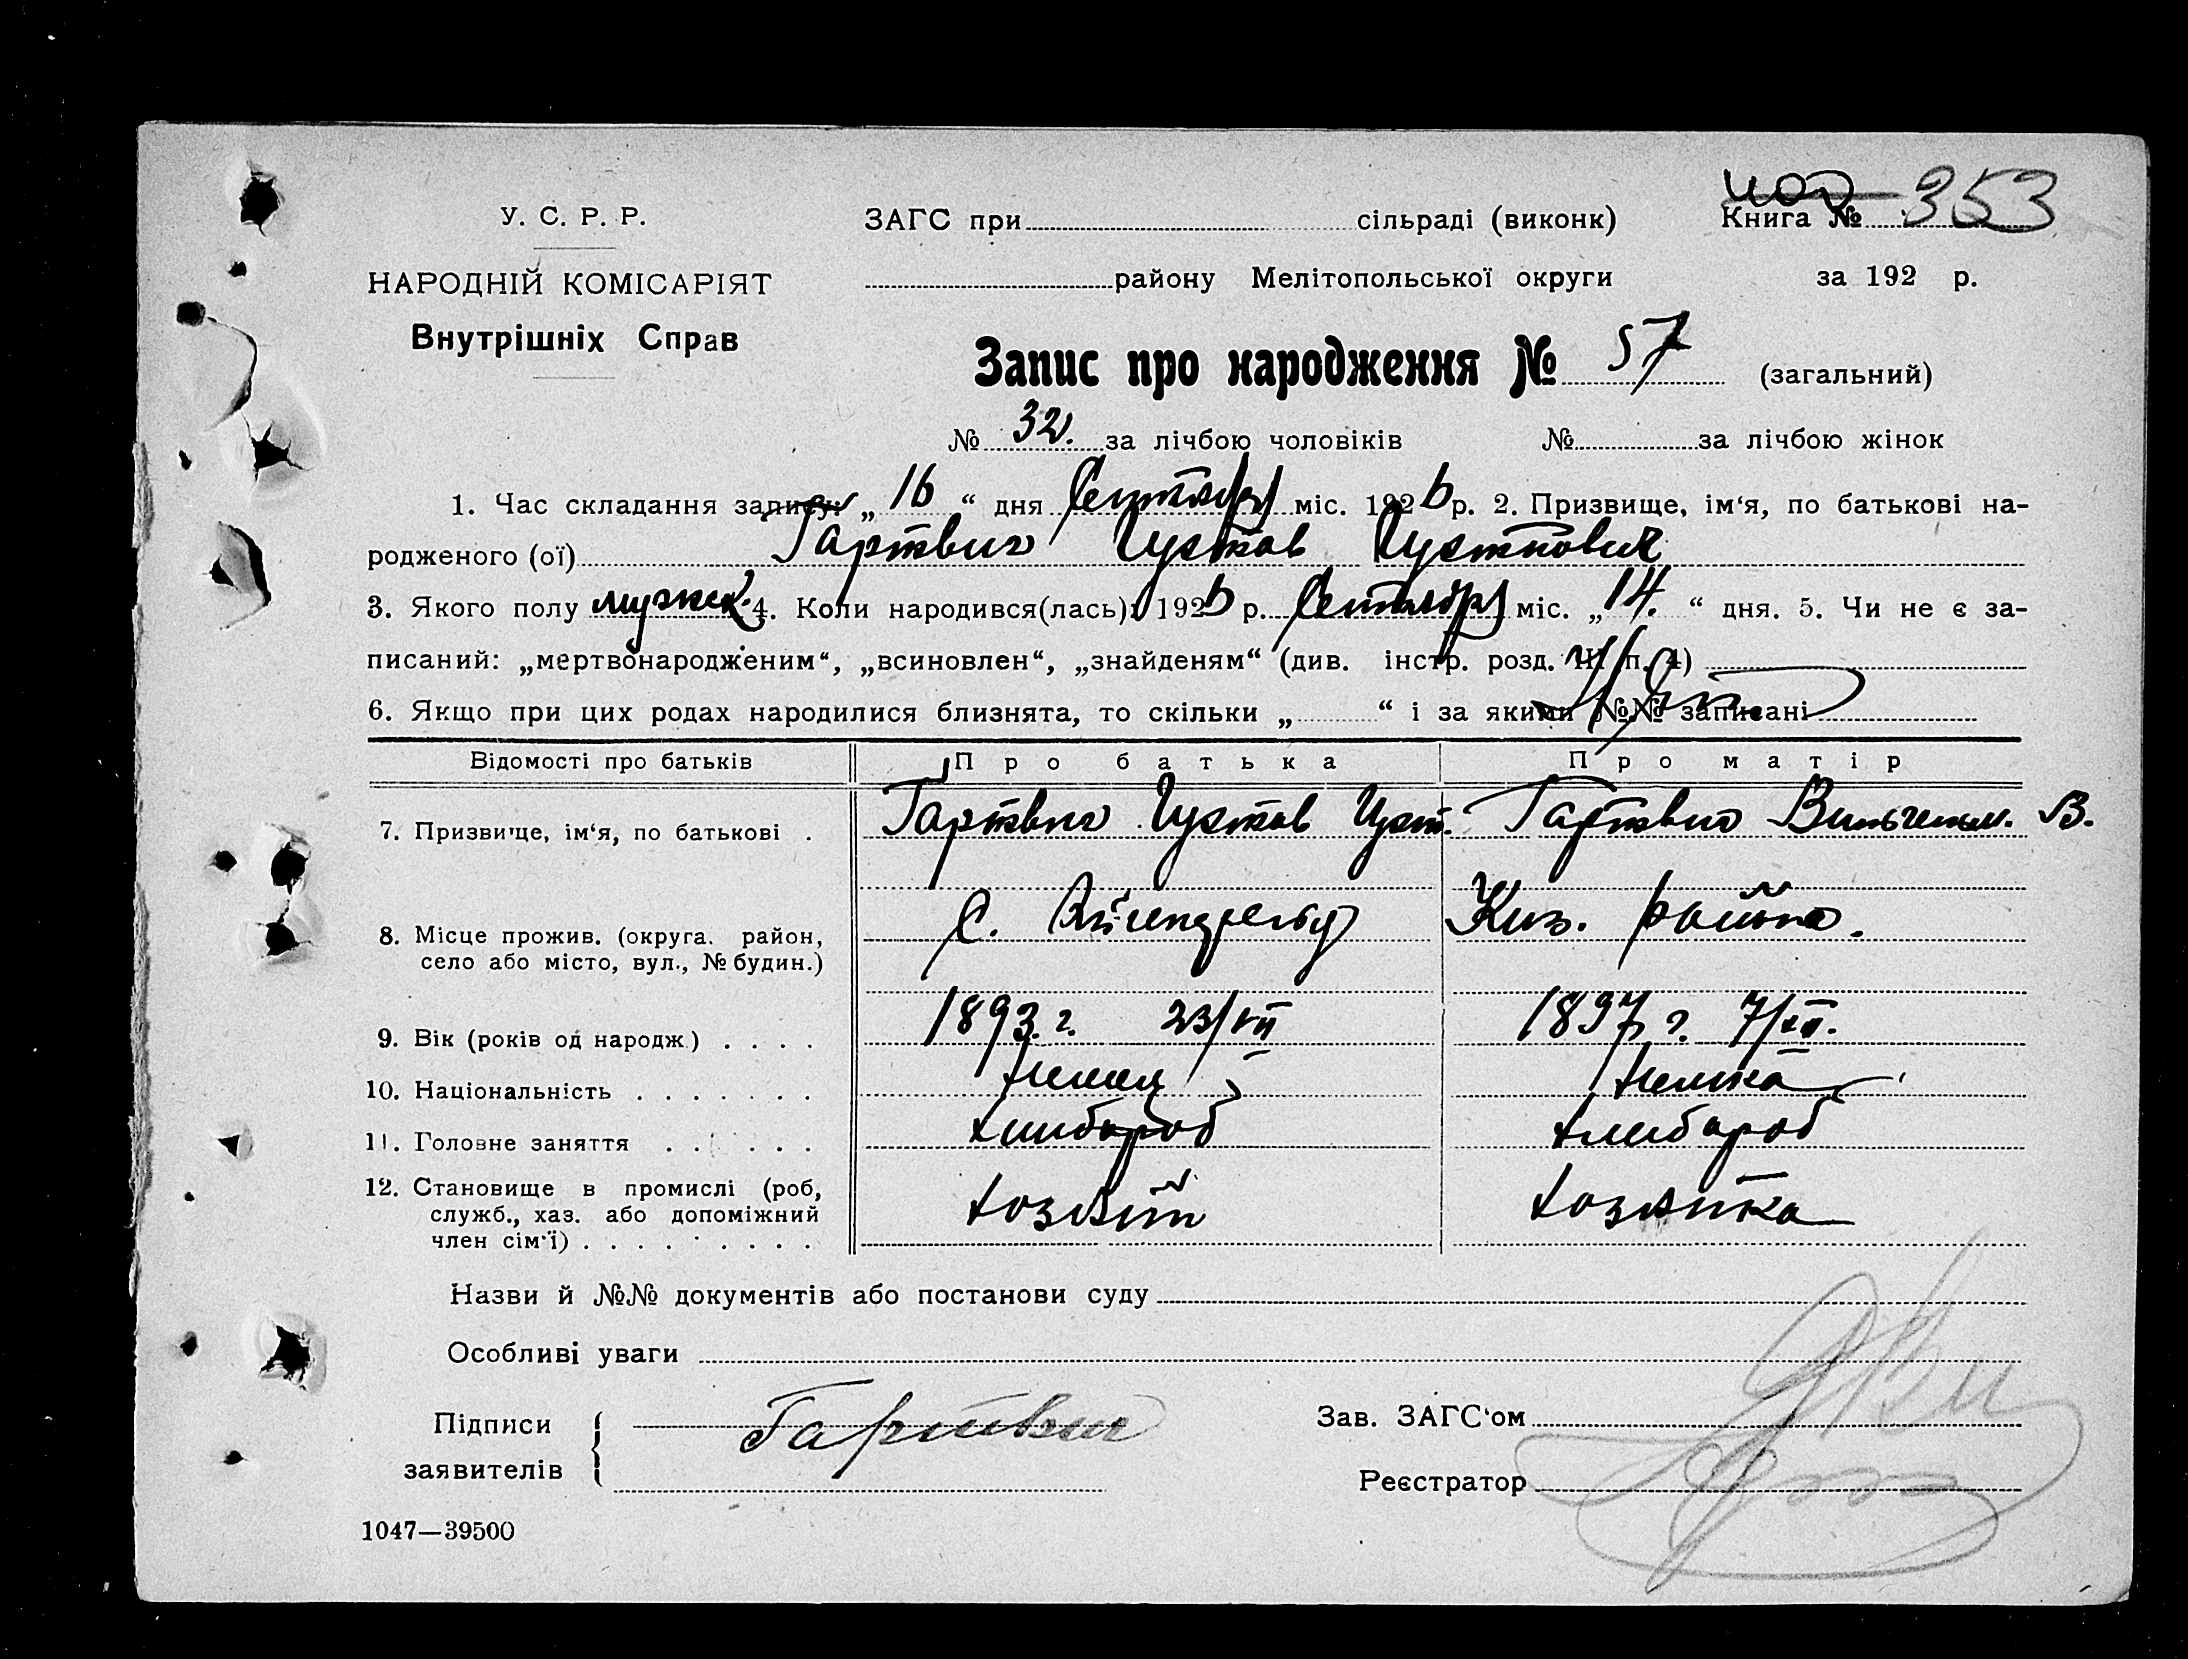 353
У. С. Р. Р.
ЗАГС при сільраді (виконк)
Книга №
НАРОДНІЙ КОМІСАРІЯТ
району Мелітопольської округи
за 192 р.
Внутрішніх Справ
Запис про народження № 57 (загальний)
№ 32. за лічбою чоловіків № за лічбою жінок
1. Час складання запису: „ 16 “ дня Сентября міс. 1926 р. 2. Призвище, ім‘я, по батькові на-
родженого (ої) Гартвиг Густав Густавович
3. Якого полу мужск. 4. Коли народився(лась): 1926 р. Сентября міс. „ 14. “ дня. 5. Чи не є за-
писаний: „мертвонародженим“, „всиновлен“, „знайденям“ (див. інстр. розд. III п. 4)
6. Якщо при цих родах народилися близнята, то скільки „ “ і за якими №№ записані
Відомості про батьків Про батька Про матір
7. Призвище, ім‘я, по батькові . Гартвиг Густав Густ. Гартвиг Вильгельм. В.
8. Місце прожив. (округа. район, С. Киз. района.
село або місто, вул., № будин.)
9. Вік (років од народж.) . . . . 1893 г. 23/VII 1897 г. 7/XII.
10. Національність . . . . . . . Немец Немка
11. Головне заняття . . . . . . Хлебороб Хлебороб
12. Становище в промислі (роб, Хозяин Хозяйка
служб., хаз. або допоміжний
член сім‘ї) . . . . . . . . .
Назви й №№ документів або постанови суду
Особливі уваги
Підписи Гартвиг Зав. ЗАГС‘ом
заявителів Реєстратор
1047—39500